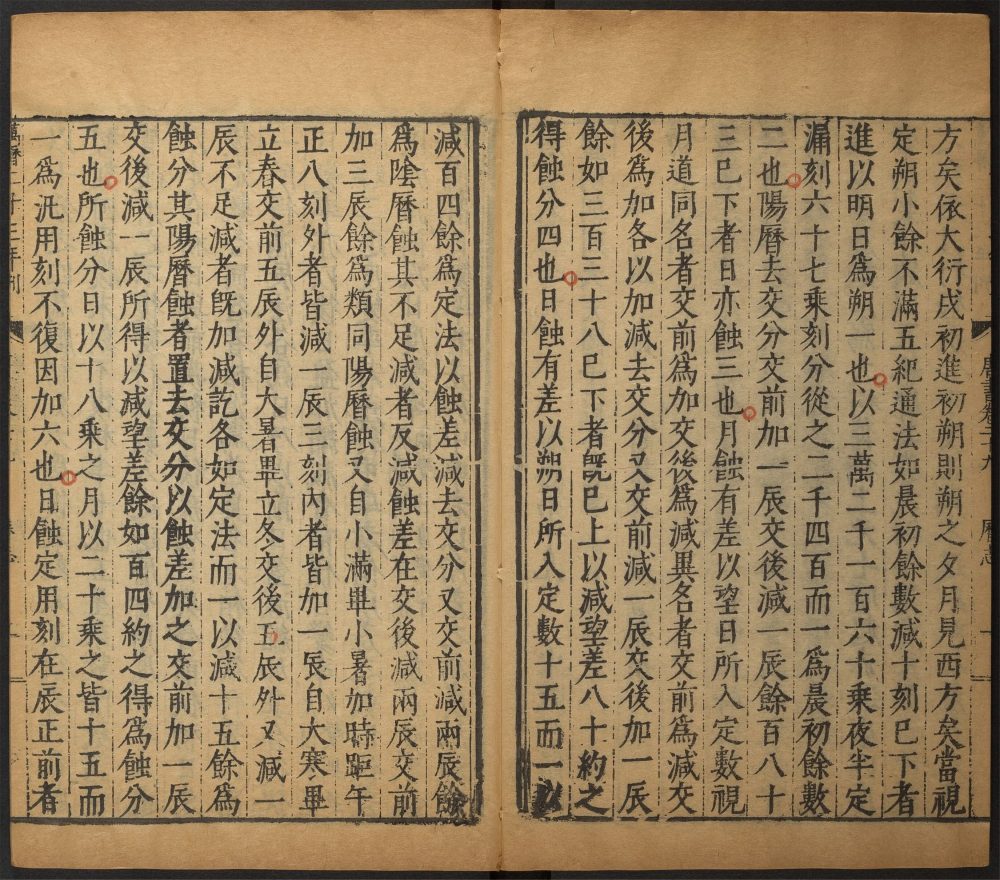 方矣依大衍戌初進初朔則朔之夕月見西方矣當視
定朔小餘不滿五紀通法如晨初餘數減十刻已下者
進以明日爲朔一也以三萬二千一百六十乘夜半定
漏刻六十七乘刻分從之二千四百而一爲晨初餘數
二也陽曆去交分交前加一辰交後減一辰餘百八十
三已下者日亦蝕三也月蝕有差以望日所入定數視
月道同名者交前爲加交後爲減異名者交前爲減交
後爲加各以加減去交分又交前減一辰交後加一辰
餘如三百三十八已下者旣已上以減望差八十約之
得蝕分四也日蝕有差以朔日所入定數十五而一以
唐書卷二十九 曆志
減百四餘爲定法以蝕差減去交分又交前減兩辰餘
爲陰曆蝕其不足減者反減蝕差在交後減兩辰交前
加三辰餘爲類同陽曆蝕又自小滿畢小暑加時距午
正八刻外者皆減一辰三刻內者皆加一辰自大寒畢
立春交前五辰外自大暑畢立冬交後五辰外又減一
辰不足減者旣加減訖各如定法而一以減十五餘爲
蝕分其陽曆蝕者置去交分以蝕差加之交前加一辰
交後減一辰所得以減望差餘如百四約之得爲蝕分
五也所蝕分日以十八乘之月以二十乘之皆十五而
一爲汎用刻不復因加六也日蝕定用刻在辰正前者
萬曆二十三年刊